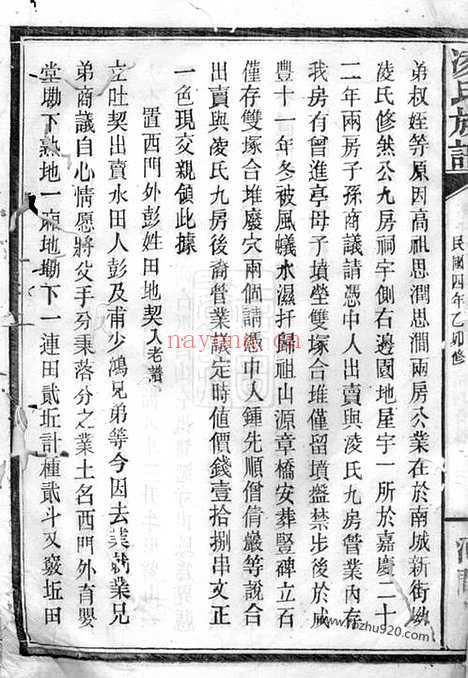 弟叔姪等原因高祖思潤思澗兩房公業在於南城新街
凌氏修然公九房祠宇側右邊園地屋宇一所於嘉慶二十
二年兩房子孫商議請憑中人出賣與凌氏九房營業內存
我房有曾進亭母子墳塋雙塚合堆僅留墳盤禁步後於咸
豐十一年冬被風蟻水濕扦歸祖山源章橋安葬豎碑立石
僅存雙塚合堆廢穴兩個請憑中人鍾先順僧倩巖等說合
出賣與凌氏九房後裔營業議定時值價錢壹拾捌串文正
一色現交親領此據
置西門外彭姓田地契入老譜
立吐契出賣水田人彭及甫少鴻兄弟等今因去業就業兄
弟商議自心情愿將父手分秉落分之業土名西門外育嬰
堂墈下熟地一兩地墈下一連田貳坵計種貳斗又竅坵田
凌氏族譜
民國四年乙卯修
nayona.cn
www.fozhu920.com